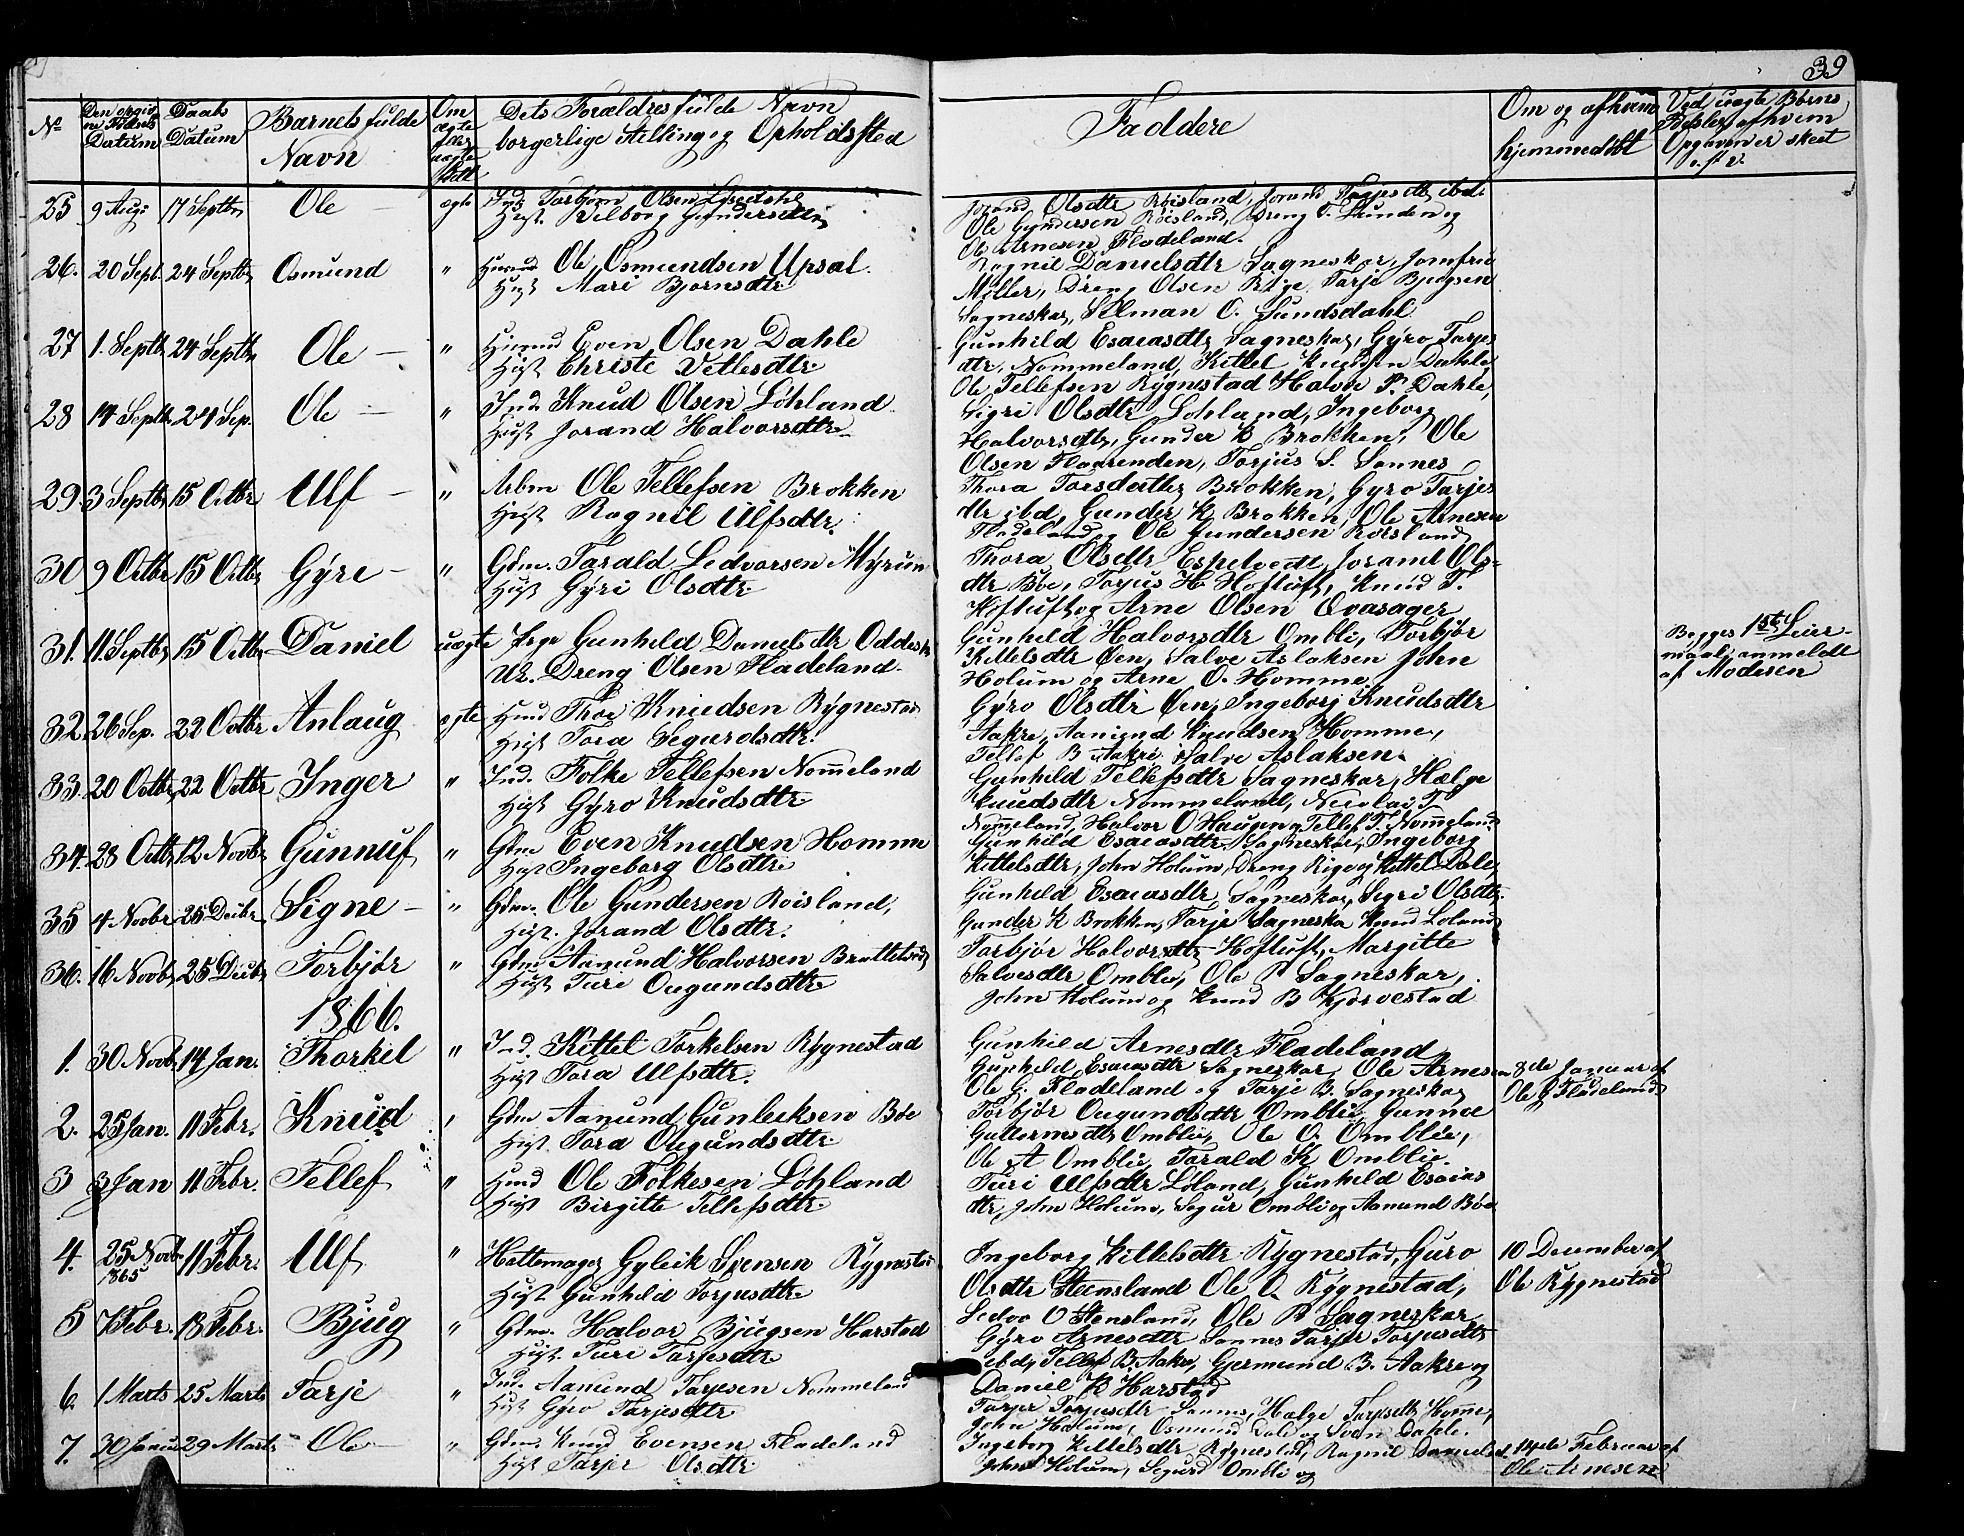 39
No
Den opgivne Fødsels Datum
Daabs Datum
Barnets fulde Navn
Om ægte eller uægte født
Dets Forældres fulde Navn borgerlige Stilling og Opholdssted
Faddere
Om og af hvem hjemmedøbt
Ved uægte Børns af hvem Opgaven er skeet
25 9 Aug: 17 Septbr Ole – ægte Ind. Torbjørn Olsen
Hust. Vilborg Gundersdtr
Jorand Olsdtr Røisland, Jorand Tarjesdtr ibd.
Ole Gundersen Røisland, Dreng T. Lunden og
Ole Arnesen Fladeland.
26. 20 Sept. 24 Septbr Osmund " Huusmd Ole Osmundsen Upsal.
Hust Mari Bjørnsdtr
Ragnil Danielsdtr Sagneskar, Jomfru
Møller, Dreng Olsen Rige, Tarje Bjugsen
Sagneskar, Salman O. Sundsdahl
27 1. Septb 24 Septbr Ole – " Huusmd Even Olsen Dahle
Hust Christe Vetlesdtr.
Gunhild Esaiasdtr Sagneskar, Gyro Tarjes
dtr. Nommeland, Kittel Knudsen Dahle,
Ole Tellefsen Rygnestad Halvor P. Dahle,
28 14 Septb 24 Sep. Ole – " Ind. Knud Olsen Løhland
Hust Jorand Halvorsdtr
Sigri Olsdtr Løhland, Ingeborg
Halvorsdtr, Gunder K Brokken, Ole
Olsen Flaarenden, Torjus S. Sannes
29. 3 Septbr 15 Octbr Ulf – " Arbm Ole Tellefsen Brokken
Hust Ragnil Ulfsdtr.
Thora Torsdatter Brokken, Gyro Tarjes
dtr ibd, Gunder K Brokken, Ole Arnesen
Fladeland, Ole Gundersen Røisland
30 9 Octbr 15 Octbr Gyre – " Gdm. Tarald Sedvorsen Myrum
Hust Gyri Olsdtr.
Thora Olsdtr Espetvedt, Joramt Ols-
dtr Bøe, Torjus H Hoftuft, Knud T.
Hoftuft og Arne Olsen Qvasager
31. 11. Septbr 15 Octbr Daniel uægte Pige Gunhild Danielsdtr Oddesk
Uk. Dreng Olsen Fladeland.
Gunhild Halvorsdtr Omblie, Torbjør
Kittelsdtr Øen, Salve Aslaksen John
Holum og Arne O. Homme
Begges 1ste Leier-
maal anmeldt
af Moderen
32 26 Sep. 22 Octbr Anlaug ægte Huusmd Thor Knudsen Rygnestad
Hust Tora Segurdsdtr.
Gyro Olsdtr Øen, Ingeborg Knudsdtr
Aakre, Aamund Knudsen Homme,
Tellef B Aakre Salve Aslaksen.
33. 20 Octbr 22 Octbr Inger " Ind. Folke Tellefsen Nomeland
Hust Gyro Knudsdtr
Gunhild Tellefsdtr Sagneskar, Hælge
Knudsdtr Nommeland, Nicolai T
Nomeland, Halvor O Haugen, Tellef T. Nomeland
34. 28 Octb 12 Novbr Gunnuf " Gdm Even Knudsen Homme
Hust Ingeborg Olsdtr
Gunhild Esaiasdtr Sagneskar, Ingeborg
Kittelsdtr, John Holum, Dreng Rige og Kittel Dale,
35 4 Novbr 25 Decbr Signe – " Gdm. Ole Gundersen Roisland,
Hust. Jorand Olsdtr.
Gunhild Esaiasdtr, Sagneskar, Sigri Olsdtr.
Gunder K Brokken, Tarje Sagneska Knud Loland
36. 16 Novbr 25 Decbr Torbjør " Gdm Aamund Halvorsen Brottelid
Hust Turi Ougundsdtr
Torbjør Halvorsdtr Hoftuft, Margitte
Salvesdtr Omblie, Ole P Sagneskar,
John Holum og Knud B Kjørvestad
1866.
1. 30 Novb. 14 Jan. Thorkil " Ind. Kittel Torkelsen Rygnestad
Hust Tora Ulfsdtr.
Gunhild Arnesdtr Fladeland
Gunhild Esaiasdtr Sagneskar, Ole Arnesen
Ole G. Fladeland og Tarje B. Sagneskar
8de Januar af
Ole G Fladeland
2. 25 Jan. 11 Febr. Knud " Gdm Aamund Gunleiksen Bøe
Hust. Tora Ougundsdtr.
Torbjør Ougundsdtr Omblie, Gunnor
Guttormsdtr Omblie, Ole O. Omblie,
Ole A Omblie, Tarald K Omblie.
3 3 Jan 11 Febr. Tellef " Huusmd Ole Folkesen Løhland
Hust Birgitte Tellefsdtr.
Turi Ulfsdtr Løland, Gunhild Esaias
dtr, John Holum, Segur Omblie og Aamund Bøe
4. 25 Novbr 1865 11 Febr. Ulf " Hattemager Gyleik Svensen Rygnestad
Hust Gunhild Torjusdtr
Ingeborg Kittelsdtr Rygnestad, Guro
Olsdtr Stensland Ole O. Rygnestad,
Sedvo O Stensland, Ole P Sagneskar
10 December af
Ole Rygnestad
5 7 Febr. 18 Febr. Bjug " Gdm. Halvor Bjugsen Harstad
Hust. Turi Tarjesdtr
Gyro Arnesdtr Sannes Tarjer Torjusdtr
ibd, Tellef B. Aakre, Gjermund B. Aakre og
Daniel K Harstad
6. 1 Marts 25 Marts Tarje " Ind. Aamund Tarjesen Nommeland
Hust Gyro Tarjesdtr
Tarjer Torjusdtr Sannes, Hælge Tarjesdtr Homme,
John Holum, Osmund Dale og Sven Dahle.
7. 30 Janu 29 Marts Ole – " Gdm. Knud Evensen Fladeland
Hust Tarjer Olsdtr
Ingeborg Kittelsdtr Rygnestad, Ragnil Danielsd.
John Holum, Segurd Omblie og
Februar af
Ole Arnesen